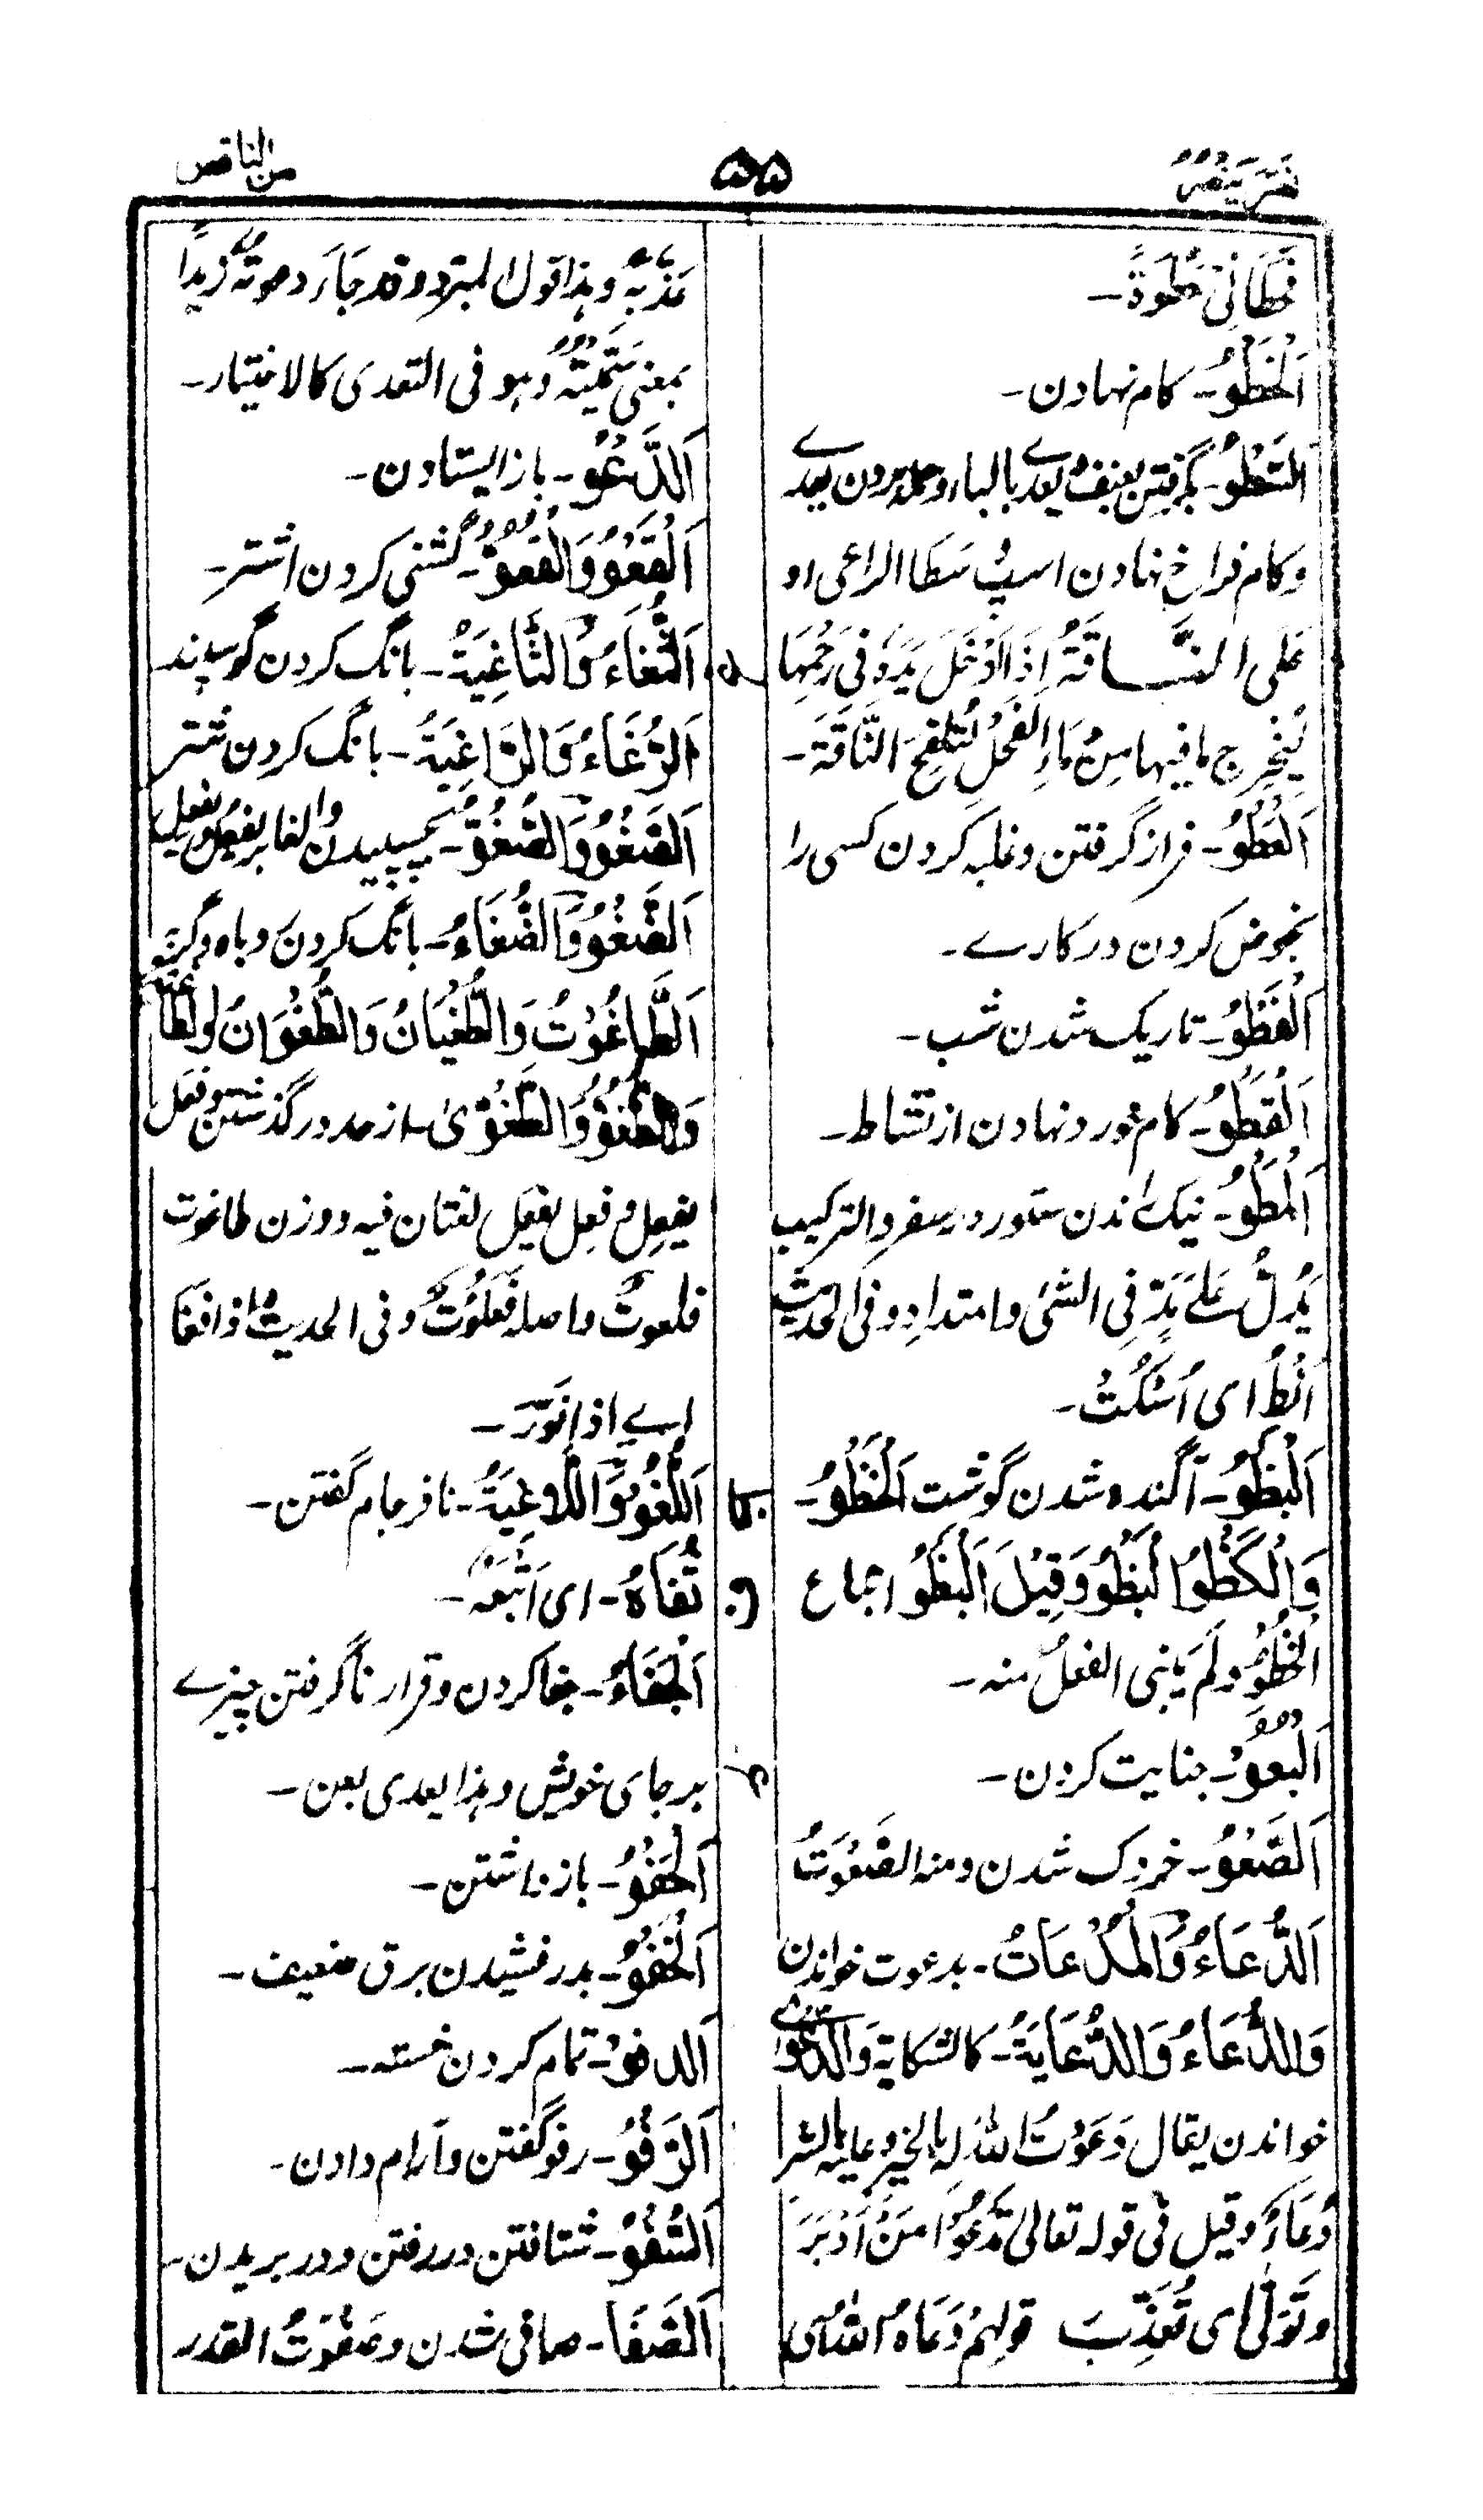 نصر ينصر
۵۵
من الناقص
فَخَطَانِی خُطْوَةً۔
اَلْخَطْوُ۔ کام نہادن۔
اَلسَّطْوُ۔ بگرفتن بعنف یعدے بالباء وحمله بردن یعدے
وکام فراخ نہادن اسپ سَطَا الراعی او
عَلَى النَّاقَةِ اِذَا اَدْخَلَ يَدَهٗ فِی رَحِمِهَا
لِيُخْرِجَ مافيها مِنْ مَاءِ الْفَحْلِ لِتَلْقَحَ النَّاقَةَ۔
اَلْغَطْوُ۔ فراز گرفتن وغلبه کردن کسی را
بخوض کردن در کارے۔
اَلْغَطْوُ۔ تاریک شدن شب۔
اَلْقَطْوُ۔ کام خورد نهادن از نشاط۔
اَلْمَطْوُ۔ نیک راندن ستور در سفر والترکیب
يَدُلُّ عَلىٰ مَدٍّ فِی الشئ وامتدادٍ وفی الحدیث
اُنْطُ ای اُسْكُتْ۔
اَلْبَظْوُ۔ آگنده شدن گوشت اَلْخَظْوُ۔
وَالْكَظْوُ البَظْوُ وَقِيْلَ اَلْبَظْوُ اتباع
الْخَظْوِ وَلَمْ يُبْنى الفعلُ منه۔
اَلْبَعْوُ۔ جنایت کردن۔
اَلصَّعْوُ۔ خردک شدن ومنه الصَّعْوَةُ
اَلدُّعَاءُ وَالْمَدْعَاتُ۔ بدعوت خواندن
وَالدُّعَاءُ وَالدِّعَايَةُ۔ کالشکایة وَالدَّعْوٰى
خواندن یقال دَعَوْتُ اللهَ لَهٗ بالخير وعليه بالشر
دُعَاءً وقيل فی قوله تعالی تَدْعُوْا مَنْ اَدْبَرَ
وَتَوَلّٰى ای تُعَذِّبُ قولهم دَعَاهُ اللهُ ای
عَذَّبَهٗ وہذا قول المبرد وقد جَاءَ دعوتُهٗ زیداً
بمعنی سَمَّيْتُهٗ وہو فی التعدی کالاختیار۔
اَلدَّعْوُ۔ باز ایستادن۔
اَلْقَعْوُ وَالْقُعُوُّ۔ گشنی کردن اشتر۔
غ
اَلثُّغَاءُ وَالثَّاغِيَةُ۔ بانگ کردن گوسپند
اَلرُّغَاءُ وَالرَّاغِيَةُ۔ بانگ کردن شتر
اَلصَّغْوُ وَالصُّغُوُّ۔ بچسپیدن والغابر یفعُل ویفعل
اَلضَّغْوُ وَالضُّغَاءُ۔ بانگ کردن روباه وگربه
اَلطَّاغُوْتُ وَالطُّغْيَانُ وَالطُّغْوَانُ
وَالطُّغُوُّ وَالطَّغْوٰى۔ از حد در گذشتن وفعَل
یفعِل وفعِل یفعَل لغتان فیه ووزن طاغوت
فلعوت واصله فَعَلُوْتٌ وفی الحدیث اذا فغا
اے اذا نَوَّرَ۔
اَللَّغْوُ وَاللَّاغِيَةُ۔ نافرجام گفتن۔
ف
ثَفَاهُ۔ ای اَتْبَعَهٗ۔
اَلْجَفَاءُ۔ جفا کردن وقرار ناگرفتن چیزے
برجای خویش وہذا یعدی بعن۔
اَلْحَفْوُ۔ باز داشتن۔
اَلْخَفْوُ۔ بدرفشیدن برق ضعیف۔
الدفوُ۔ تمام کردن خسته۔
اَلرَّفْوُ۔ رفو گفتن وآرام دادن۔
اَلسَّفْوُ۔ شتافتن در رفتن ودر پریدن۔
اَلصَّفَا۔ صافی شدن وصَفْوَتُ القدر